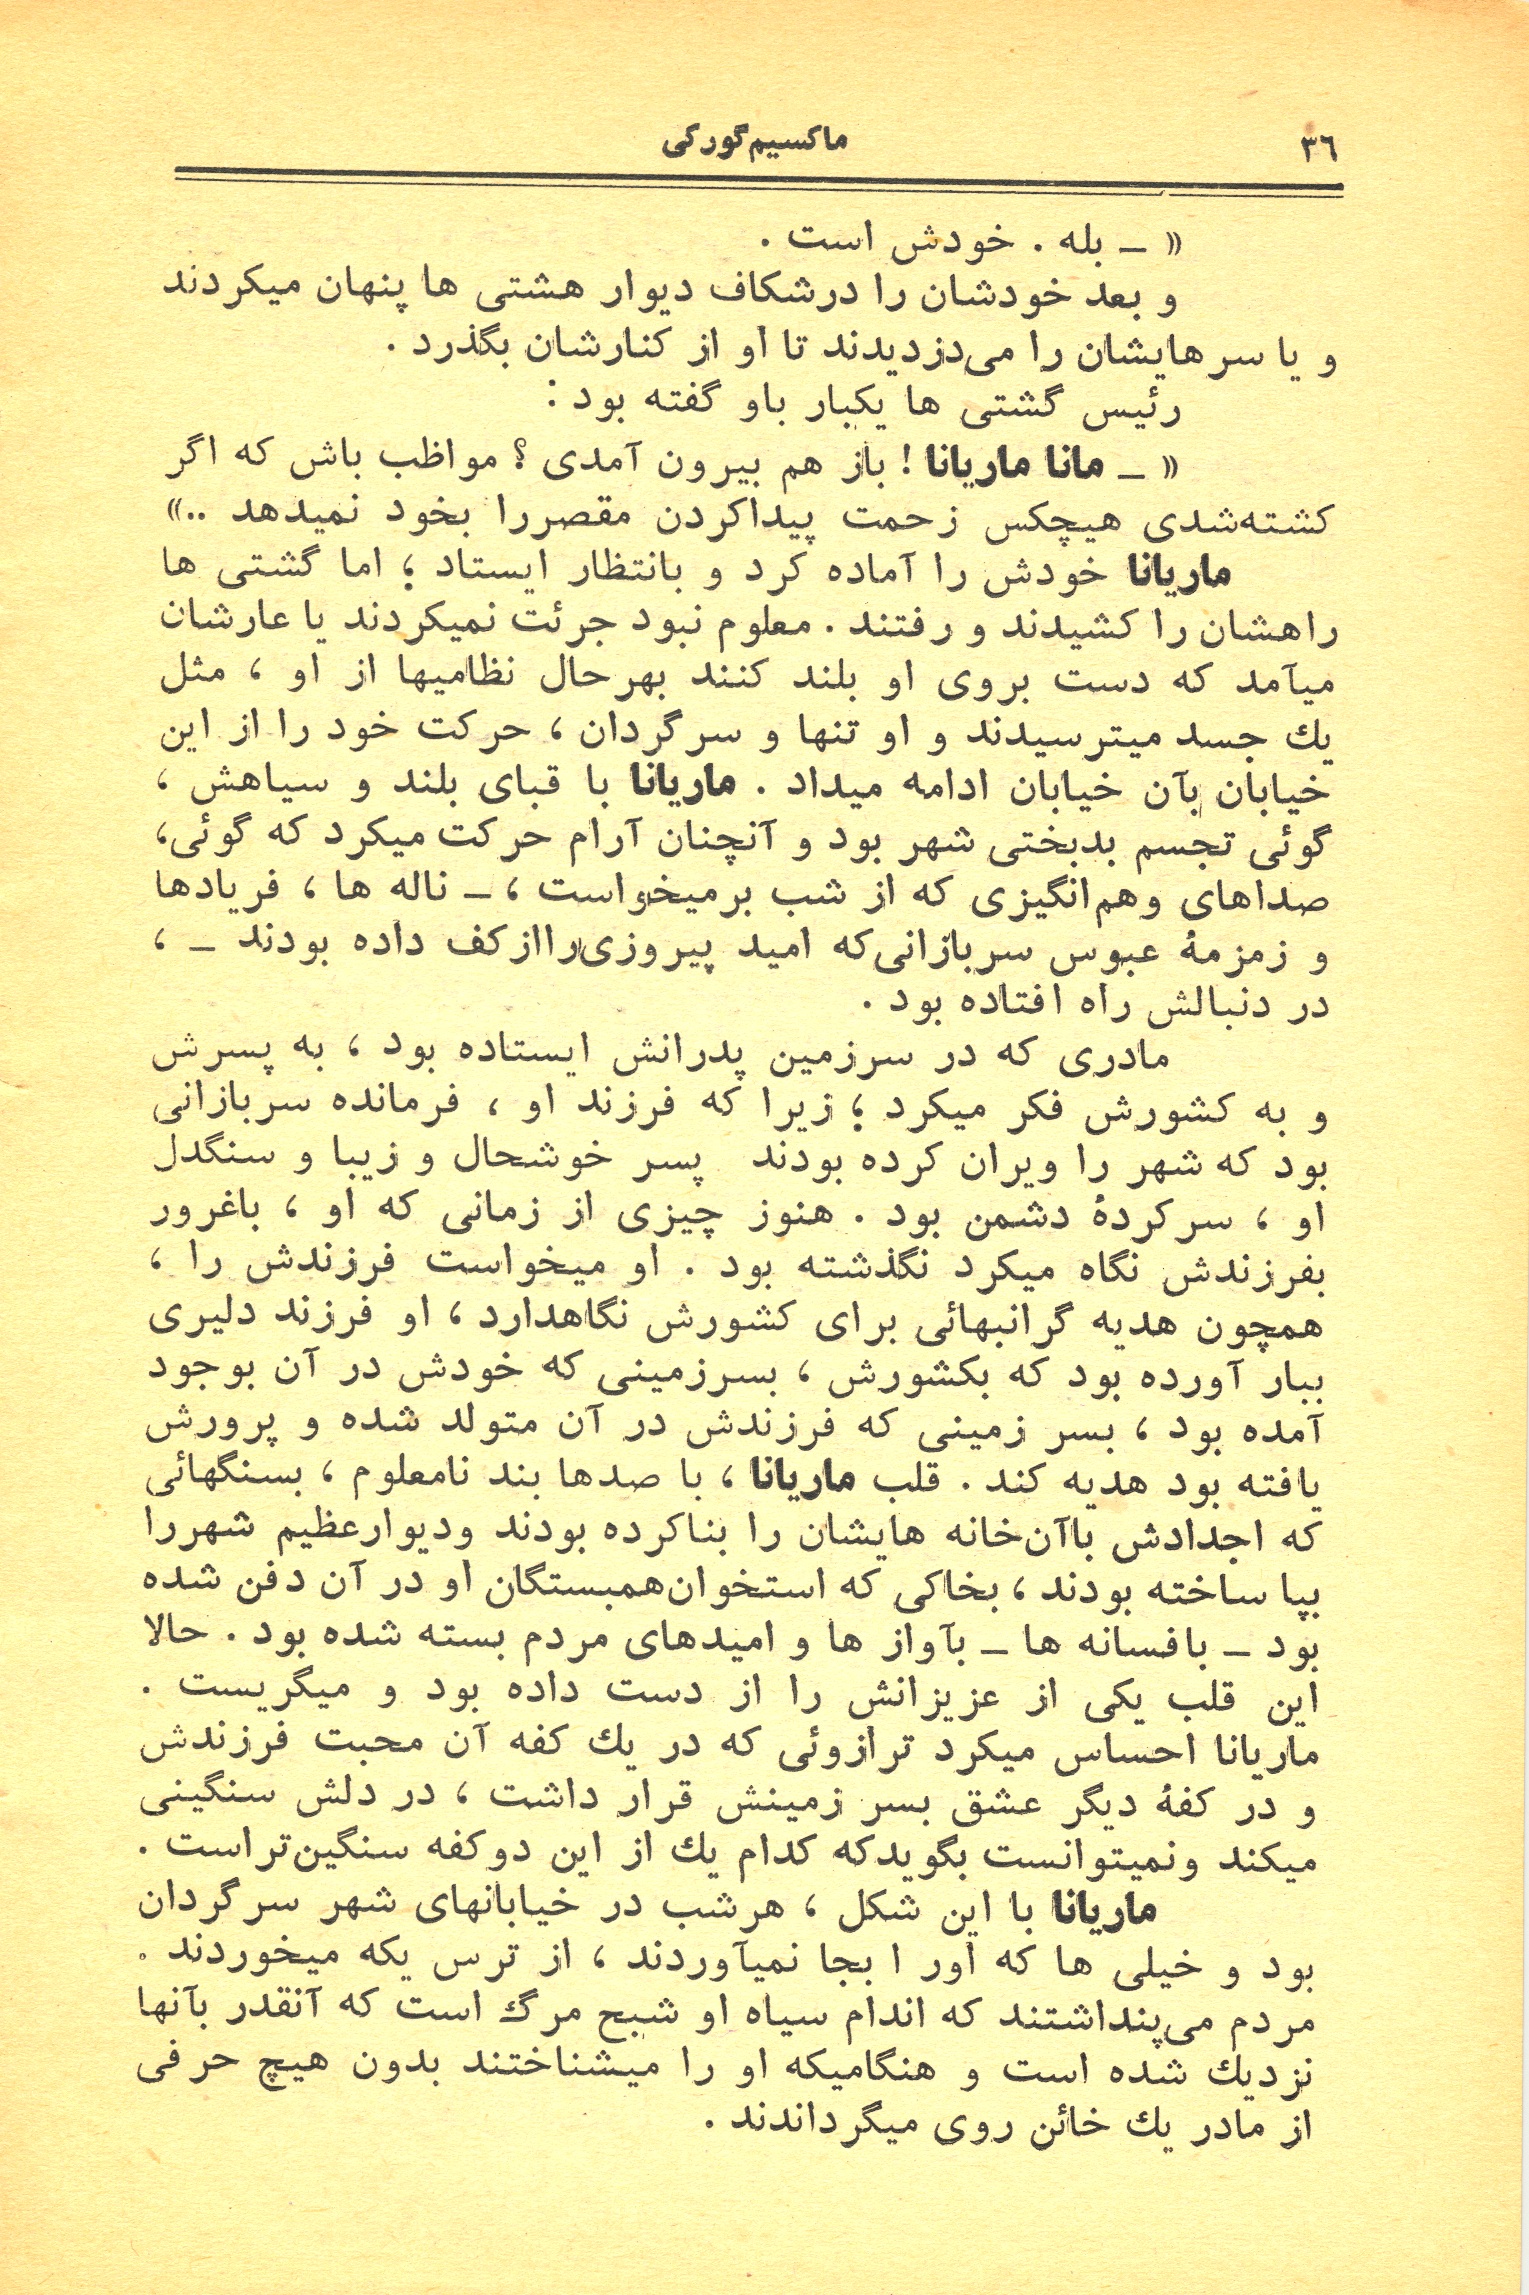 ۳۶
ماکسیم گورکی
« ـ بله . خودش است .
و بعد خودشان را درشکاف دیوار هشتی ها پنهان میکردند
و یا سرهایشان را می‌دزدیدند تا او از کنارشان بگذرد .
رئیس گشتی ها یکبار باو گفته بود :
« ـ مانا ماریانا ! باز هم بیرون آمدی ؟ مواظب باش که اگر
کشته‌شدی هیچکس زحمت پیداکردن مقصررا بخود نمیدهد ..»
ماریانا خودش را آماده کرد و بانتظار ایستاد ؛ اما گشتی ها
راهشان را کشیدند و رفتند . معلوم نبود جرئت نمیکردند یا عارشان
میآمد که دست بروی او بلند کنند بهرحال نظامیها از او ، مثل
یك جسد میترسیدند و او تنها و سرگردان ، حرکت خود را از این
خیابان بآن خیابان ادامه میداد . ماریانا با قبای بلند و سیاهش ،
گوئی تجسم بدبختی شهر بود و آنچنان آرام حرکت میکرد که گوئی،
صداهای وهم‌انگیزی که از شب برمیخواست ، ـ ناله ها ، فریادها
و زمزمهٔ عبوس سربازانی‌که امید پیروزی‌راازکف داده بودند ـ ،
در دنبالش راه افتاده بود .
مادری که در سرزمین پدرانش ایستاده بود ، به پسرش
و به کشورش فکر میکرد ؛ زیرا که فرزند او ، فرمانده سربازانی
بود که شهر را ویران کرده بودند پسر خوشحال و زیبا و سنگدل
او ، سرکردهٔ دشمن بود . هنوز چیزی از زمانی که او ، باغرور
بفرزندش نگاه میکرد نگذشته بود . او میخواست فرزندش را ،
همچون هدیه گرانبهائی برای کشورش نگاهدارد ، او فرزند دلیری
ببار آورده بود که بکشورش ، بسرزمینی که خودش در آن بوجود
آمده بود ، بسر زمینی که فرزندش در آن متولد شده و پرورش
یافته بود هدیه کند . قلب ماریانا ، با صدها بند نامعلوم ، بسنگهائی
که اجدادش باآن‌خانه هایشان را بناکرده بودند ودیوارعظیم شهررا
بپا ساخته بودند ، بخاکی که استخوان‌همبستگان او در آن دفن شده
بود ـ بافسانه ها ـ بآواز ها و امیدهای مردم بسته شده بود . حالا
این قلب یکی از عزیزانش را از دست داده بود و میگریست .
ماریانا احساس میکرد ترازوئی که در یك کفه آن محبت فرزندش
و در کفهٔ دیگر عشق بسر زمینش قرار داشت ، در دلش سنگینی
میکند ونمیتوانست بگویدکه کدام یك از این دوکفه سنگین‌تراست .
ماریانا با این شکل ، هرشب در خیابانهای شهر سرگردان
بود و خیلی ها که اور ا بجا نمیآوردند ، از ترس یکه میخوردند .
مردم می‌پنداشتند که اندام سیاه او شبح مرگ است که آنقدر بآنها
نزدیك شده است و هنگامیکه او را میشناختند بدون هیچ حرفی
از مادر یك خائن روی میگرداندند .